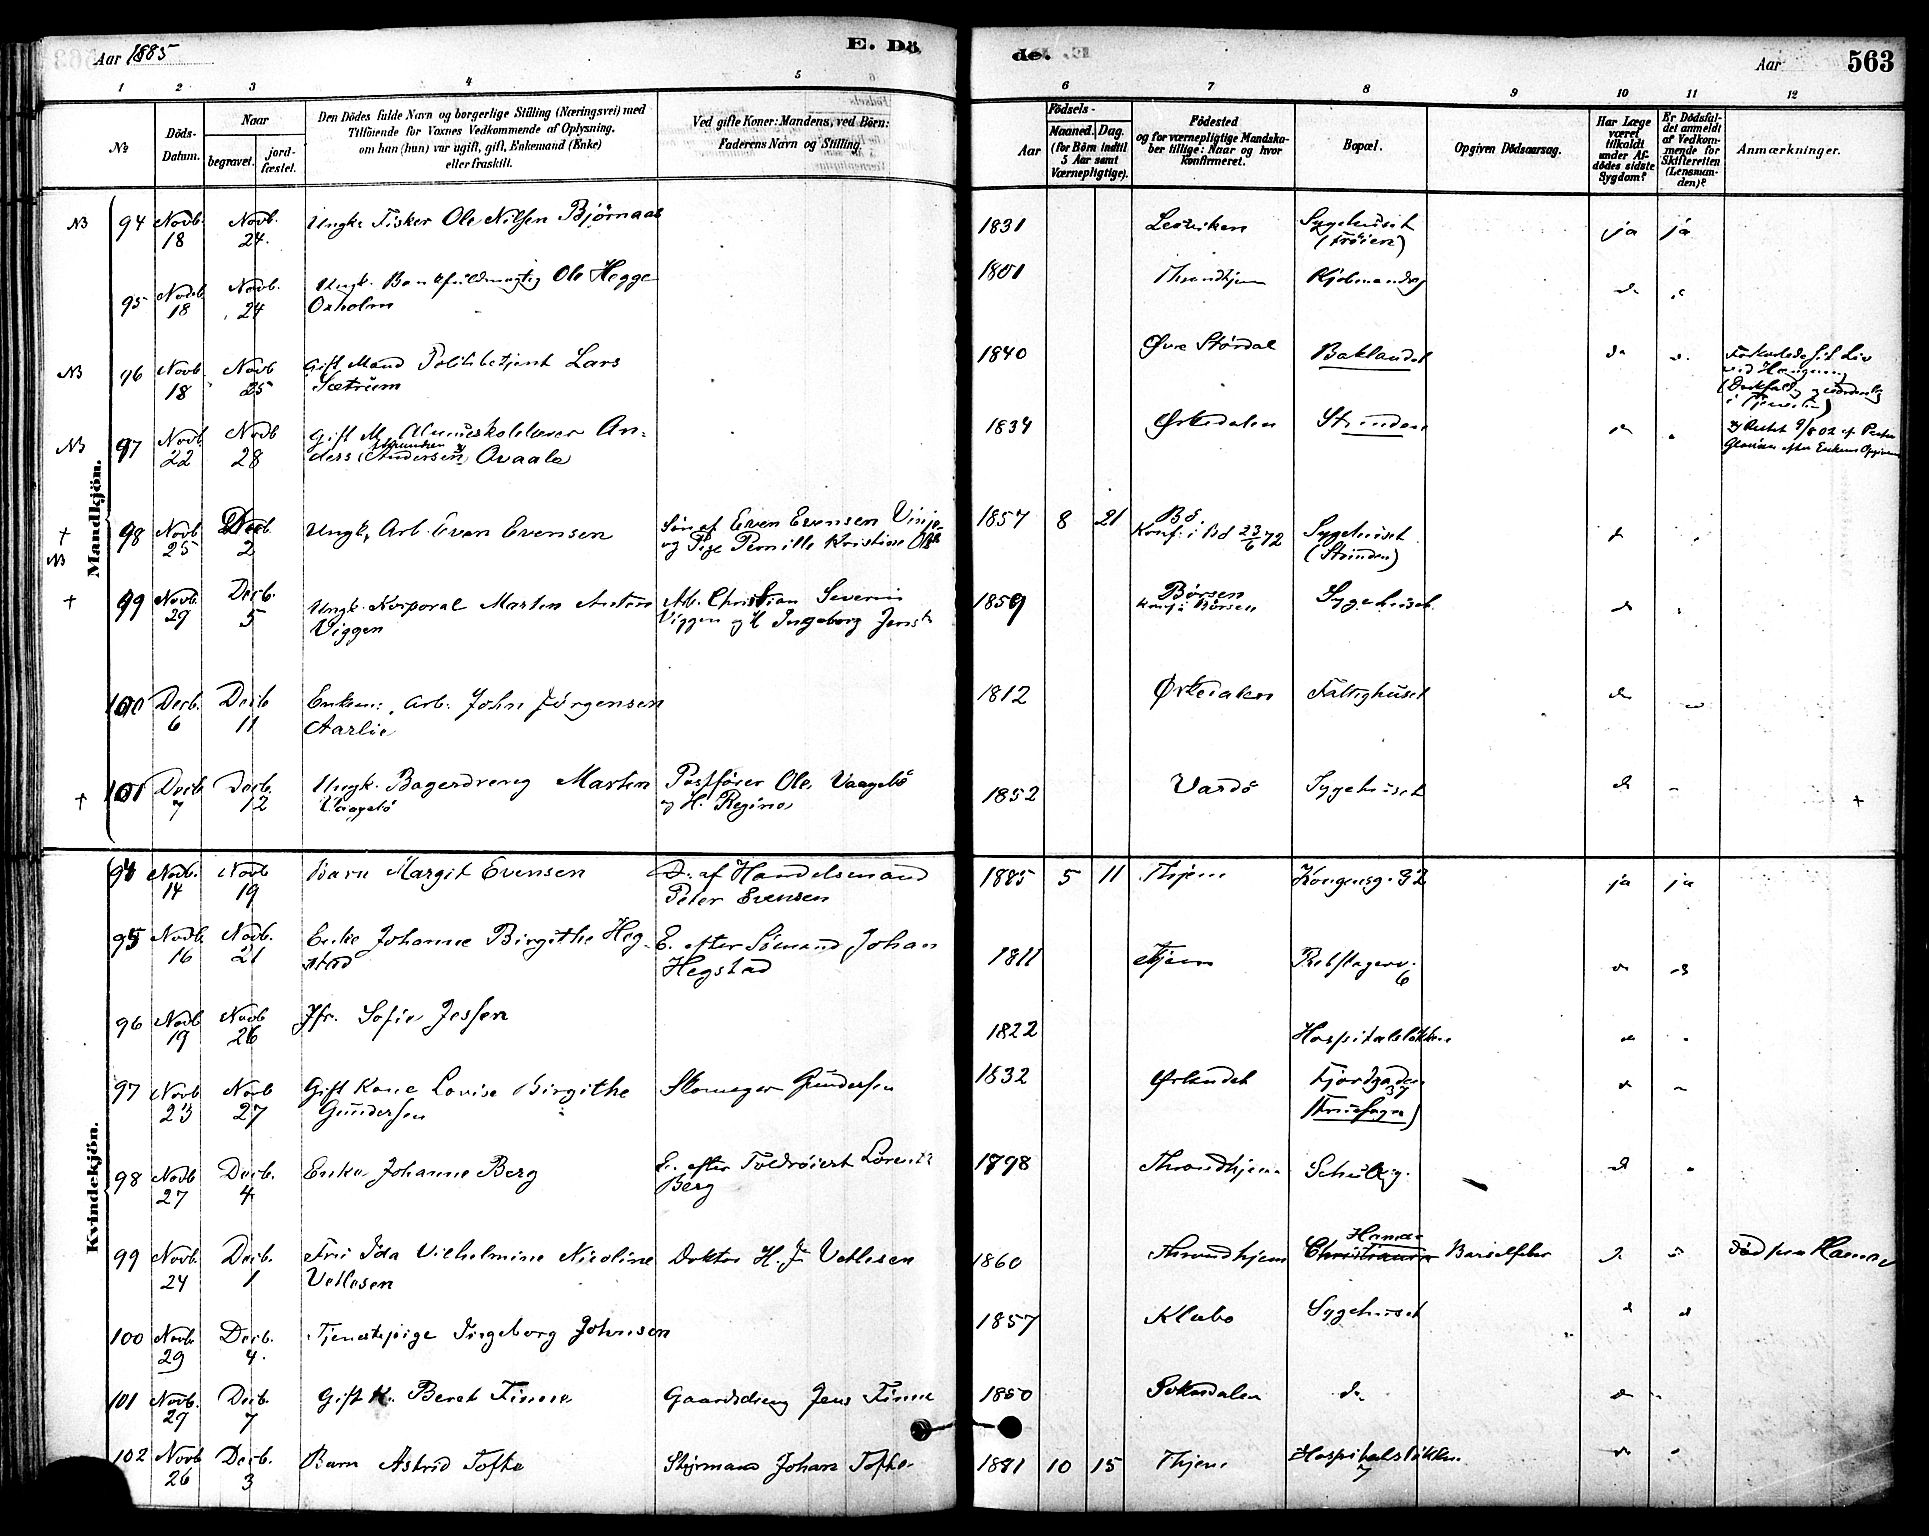 Aar 1885
E. Dö
de.
Aar
563
1 2 3 4 5 6 7 8 9 10 11 12
No
Döds-
Datum.
Naar
begravet.
jord-
fæstet.
Den Dödes fulde Navn og borgerlige Stilling (Næringsvei) med
Tilföiende for Voxnes Vedkommende af Oplysning,
om han (hun) var ugift, gift, Enkemand (Enke)
eller fraskilt.
Ved gifte Koner: Mandens, ved Börn:
Faderens Navn og Stilling.
Födsels-
Aar
Maaned. Dag.
(for Börn indtil
5 Aar samt
Værnepligtige).
Födested
og for værnepligtige Mandska-
ber tillige: Naar og hvor
konfirmeret.
Bopæl.
Opgiven Dödsaarsag.
Har Læge
været
tilkaldt
under Af-
dödes sidste
Sygdom?
Er Dödsfal-
det anmeldt
af Vedkom-
mende for
Skifteretten
(Lensman-
den)?
Anmærkninger.
Mandkjön.
NB 94 Novb. 18 Novb. 24. Ungk. Fisker Ole Nilsen Bjørnaas 1831 Lexviken Sygehuset ja ja
95 Novb. 18 Novb. 24 Ungk. Bankfuldmægtig Ole Hegge 1801 Throndhjem Kjøbmandsg
Oxholm
NB 96 Novb 18 Novb 25 Gift Mand Politibetjent Lars 1840 Øvre Størdal Baklandet
Sætrum
NB 97 Novb 22 Novb 28 Gift M. Almueskolelærer An- 1834 Ørkedalen Strinden
ders (Andersen) Ovaale
+ NB 98 Novb 25 Decb. 2 Ungk. Arb. Even Evensen Søn af Even Evensen 1857 8 21 Bø Sygehuset
og Pige Pernille Kristine Konf: i Bø 23/6 72 (Strinden)
+ 99 Novb. 29 Decb. 5 Ungk. Korporal Martin Anton Arb. Christian Severin 1859 Børsen Sygehuset
Viggen Viggen og H. Ingeborg Konf: i Børsen
100 Decb. 6 Decb 11 Enkem: Arb. John Jörgensen 1812 Ørkedalen Fattighuset
Aarlie
+ 101 Decb 7 Decb. 12 Ungk. Bagerdreng Martin Postfører Ole Vaagebö 1852 Vardö Sygehuset +
Vaagebö og H. Regine
Kvindekjön.
94 Novb. 14 Novb 19 Barn Margit Evensen D. af Handelsmand 1885 5 11 Thjem Kongensg. 92 ja ja
Peter Evensen
95 Novb. 16 Novb. 21 Enke Johanne Birgithe Heg- E. efter Sömand Johan 1811 Thjem Rebslagerv. 6
stad Hegstad
96 Novb 19 Novb 26 Jfr. Sofie Jessen 1822 Hospitalsløkken
97 Novb 23 Novb 27 Gift Kone Lovise Birgithe Skomager Gundersen 1832 Ørlandet Fjordgaden 37
Gundersen
98 Novb 27 Decb. 4 Enke Johanne Berg E. efter Toldrøiert Lorentz 1798 Throndhjem Schultzg.
Berg
99 Novb. 24 Decb. 1 Fru Ida Vilhelmine Nicoline Doktor H. J. Vetlesen 1860 Throndhjem Hamar Christiania Barselfeber Död paa Hamar
Vetlesen
100 Novb. 29 Decb. 4. Tjenestepige Ingeborg Johnsen 1857 Klæbo Sygehuset
101 Novb. 29 Decb. 7 Gift K. Beret Finne Gaardsdreng Jens Finne 1850 Soknedalen do
102 Novb 26 Decb. 3 Barn Astrid Tofte Styrmand Johan Tofte 1881 10 15 Thjem Hospitalsløkken 7